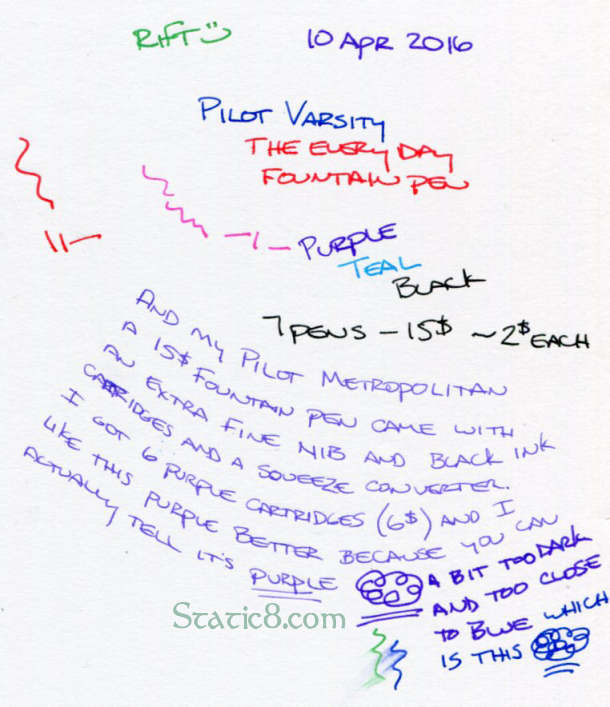 RIFT
10 APR 2016
PILOT VARSITY
THE EVERY DAY
FOUNTAIN PEN
PURPLE
TEAL
BLACK
7 PENS – 15$ ~ 2$ EACH
AND MY PILOT METROPOLITAN
A 15$ FOUNTAIN PEN CAME WITH
AN EXTRA FINE NIB AND BLACK INK
CARTRIDGES AND A SQUEEZE CONVERTER.
I GOT 6 PURPLE CARTRIDGES (6$) AND I
LIKE THIS PURPLE BETTER BECAUSE YOU CAN
ACTUALLY TELL IT'S PURPLE
A BIT TOO DARK
AND TOO CLOSE
TO BLUE WHICH
IS THIS
Static8.com